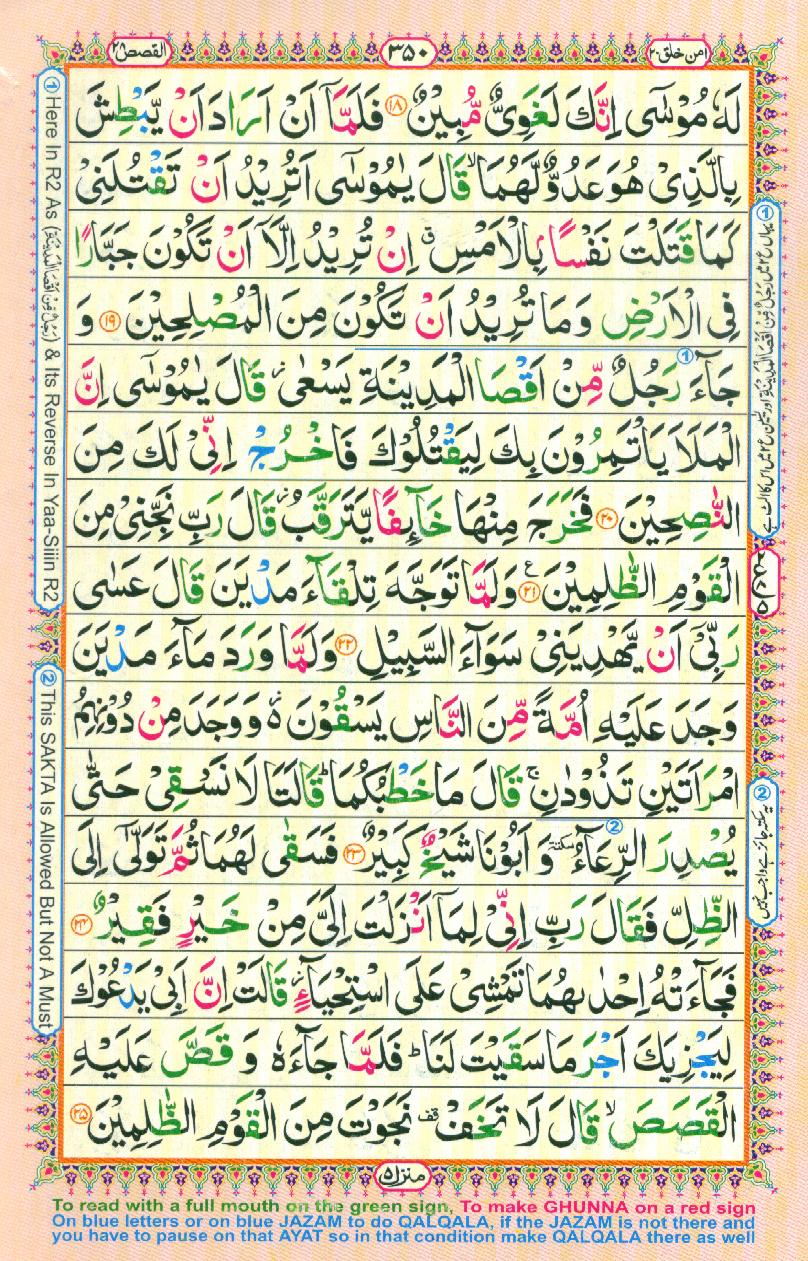 القصص ۲۸
۳۵۰
امن خلق ۲۰
لَهٗ مُوْسٰۤی اِنَّكَ لَغَوِیٌّ مُّبِیْنٌ ۱۸ فَلَمَّاۤ اَنْ اَرَادَ اَنْ یَّبْطِشَ
بِالَّذِیْ هُوَ عَدُوٌّ لَّهُمَا ۙ قَالَ یٰمُوْسٰۤی اَتُرِیْدُ اَنْ تَقْتُلَنِیْ
كَمَا قَتَلْتَ نَفْسًۢا بِالْاَمْسِ ۖۗ اِنْ تُرِیْدُ اِلَّاۤ اَنْ تَكُوْنَ جَبَّارًا
فِی الْاَرْضِ وَ مَا تُرِیْدُ اَنْ تَكُوْنَ مِنَ الْمُصْلِحِیْنَ ۱۹ وَ
جَآءَ رَجُلٌ مِّنْ اَقْصَا الْمَدِیْنَةِ یَسْعٰی ؗ قَالَ یٰمُوْسٰۤی اِنَّ
الْمَلَاَ یَاْتَمِرُوْنَ بِكَ لِیَقْتُلُوْكَ فَاخْرُجْ اِنِّیْ لَكَ مِنَ
النّٰصِحِیْنَ ۲۰ فَخَرَجَ مِنْهَا خَآىِٕفًا یَّتَرَقَّبُ ؗ قَالَ رَبِّ نَجِّنِیْ مِنَ
الْقَوْمِ الظّٰلِمِیْنَ ۲۱ ع وَ لَمَّا تَوَجَّهَ تِلْقَآءَ مَدْیَنَ قَالَ عَسٰی
رَبِّیْۤ اَنْ یَّهْدِیَنِیْ سَوَآءَ السَّبِیْلِ ۲۲ وَ لَمَّا وَرَدَ مَآءَ مَدْیَنَ
وَجَدَ عَلَیْهِ اُمَّةً مِّنَ النَّاسِ یَسْقُوْنَ ۬ۙ وَ وَجَدَ مِنْ دُوْنِهِمُ
امْرَاَتَیْنِ تَذُوْدٰنِ ۚ قَالَ مَا خَطْبُكُمَا ؕ قَالَتَا لَا نَسْقِیْ حَتّٰی
یُصْدِرَ الرِّعَآءُ ٚ سكتة وَ اَبُوْنَا شَیْخٌ كَبِیْرٌ ۲۳ فَسَقٰی لَهُمَا ثُمَّ تَوَلّٰۤی اِلَی
الظِّلِّ فَقَالَ رَبِّ اِنِّیْ لِمَاۤ اَنْزَلْتَ اِلَیَّ مِنْ خَیْرٍ فَقِیْرٌ ۲۴
فَجَآءَتْهُ اِحْدٰىهُمَا تَمْشِیْ عَلَی اسْتِحْیَآءٍ ؗ قَالَتْ اِنَّ اَبِیْ یَدْعُوْكَ
لِیَجْزِیَكَ اَجْرَ مَا سَقَیْتَ لَنَا ؕ فَلَمَّا جَآءَهٗ وَ قَصَّ عَلَیْهِ
الْقَصَصَ ۙ قَالَ لَا تَخَفْ ۫ قف نَجَوْتَ مِنَ الْقَوْمِ الظّٰلِمِیْنَ ۲۵
منزل ۵
① Here In R2 As (رَجُلٌ مِّنْ اَقْصَا الْمَدِیْنَةِ) & Its Reverse In Yaa-Siiin R2
② This SAKTA Is Allowed But Not A Must
① یہاں ع ۲ میں رَجُلٌ مِّنْ اَقْصَا الْمَدِیْنَةِ اور یٰسٓ ع ۲ میں اس کا الٹ ہے
② یہ سکتہ جائز ہے واجب نہیں
To read with a full mouth on the green sign, To make GHUNNA on a red sign
On blue letters or on blue JAZAM to do QALQALA, if the JAZAM is not there and
you have to pause on that AYAT so in that condition make QALQALA there as well